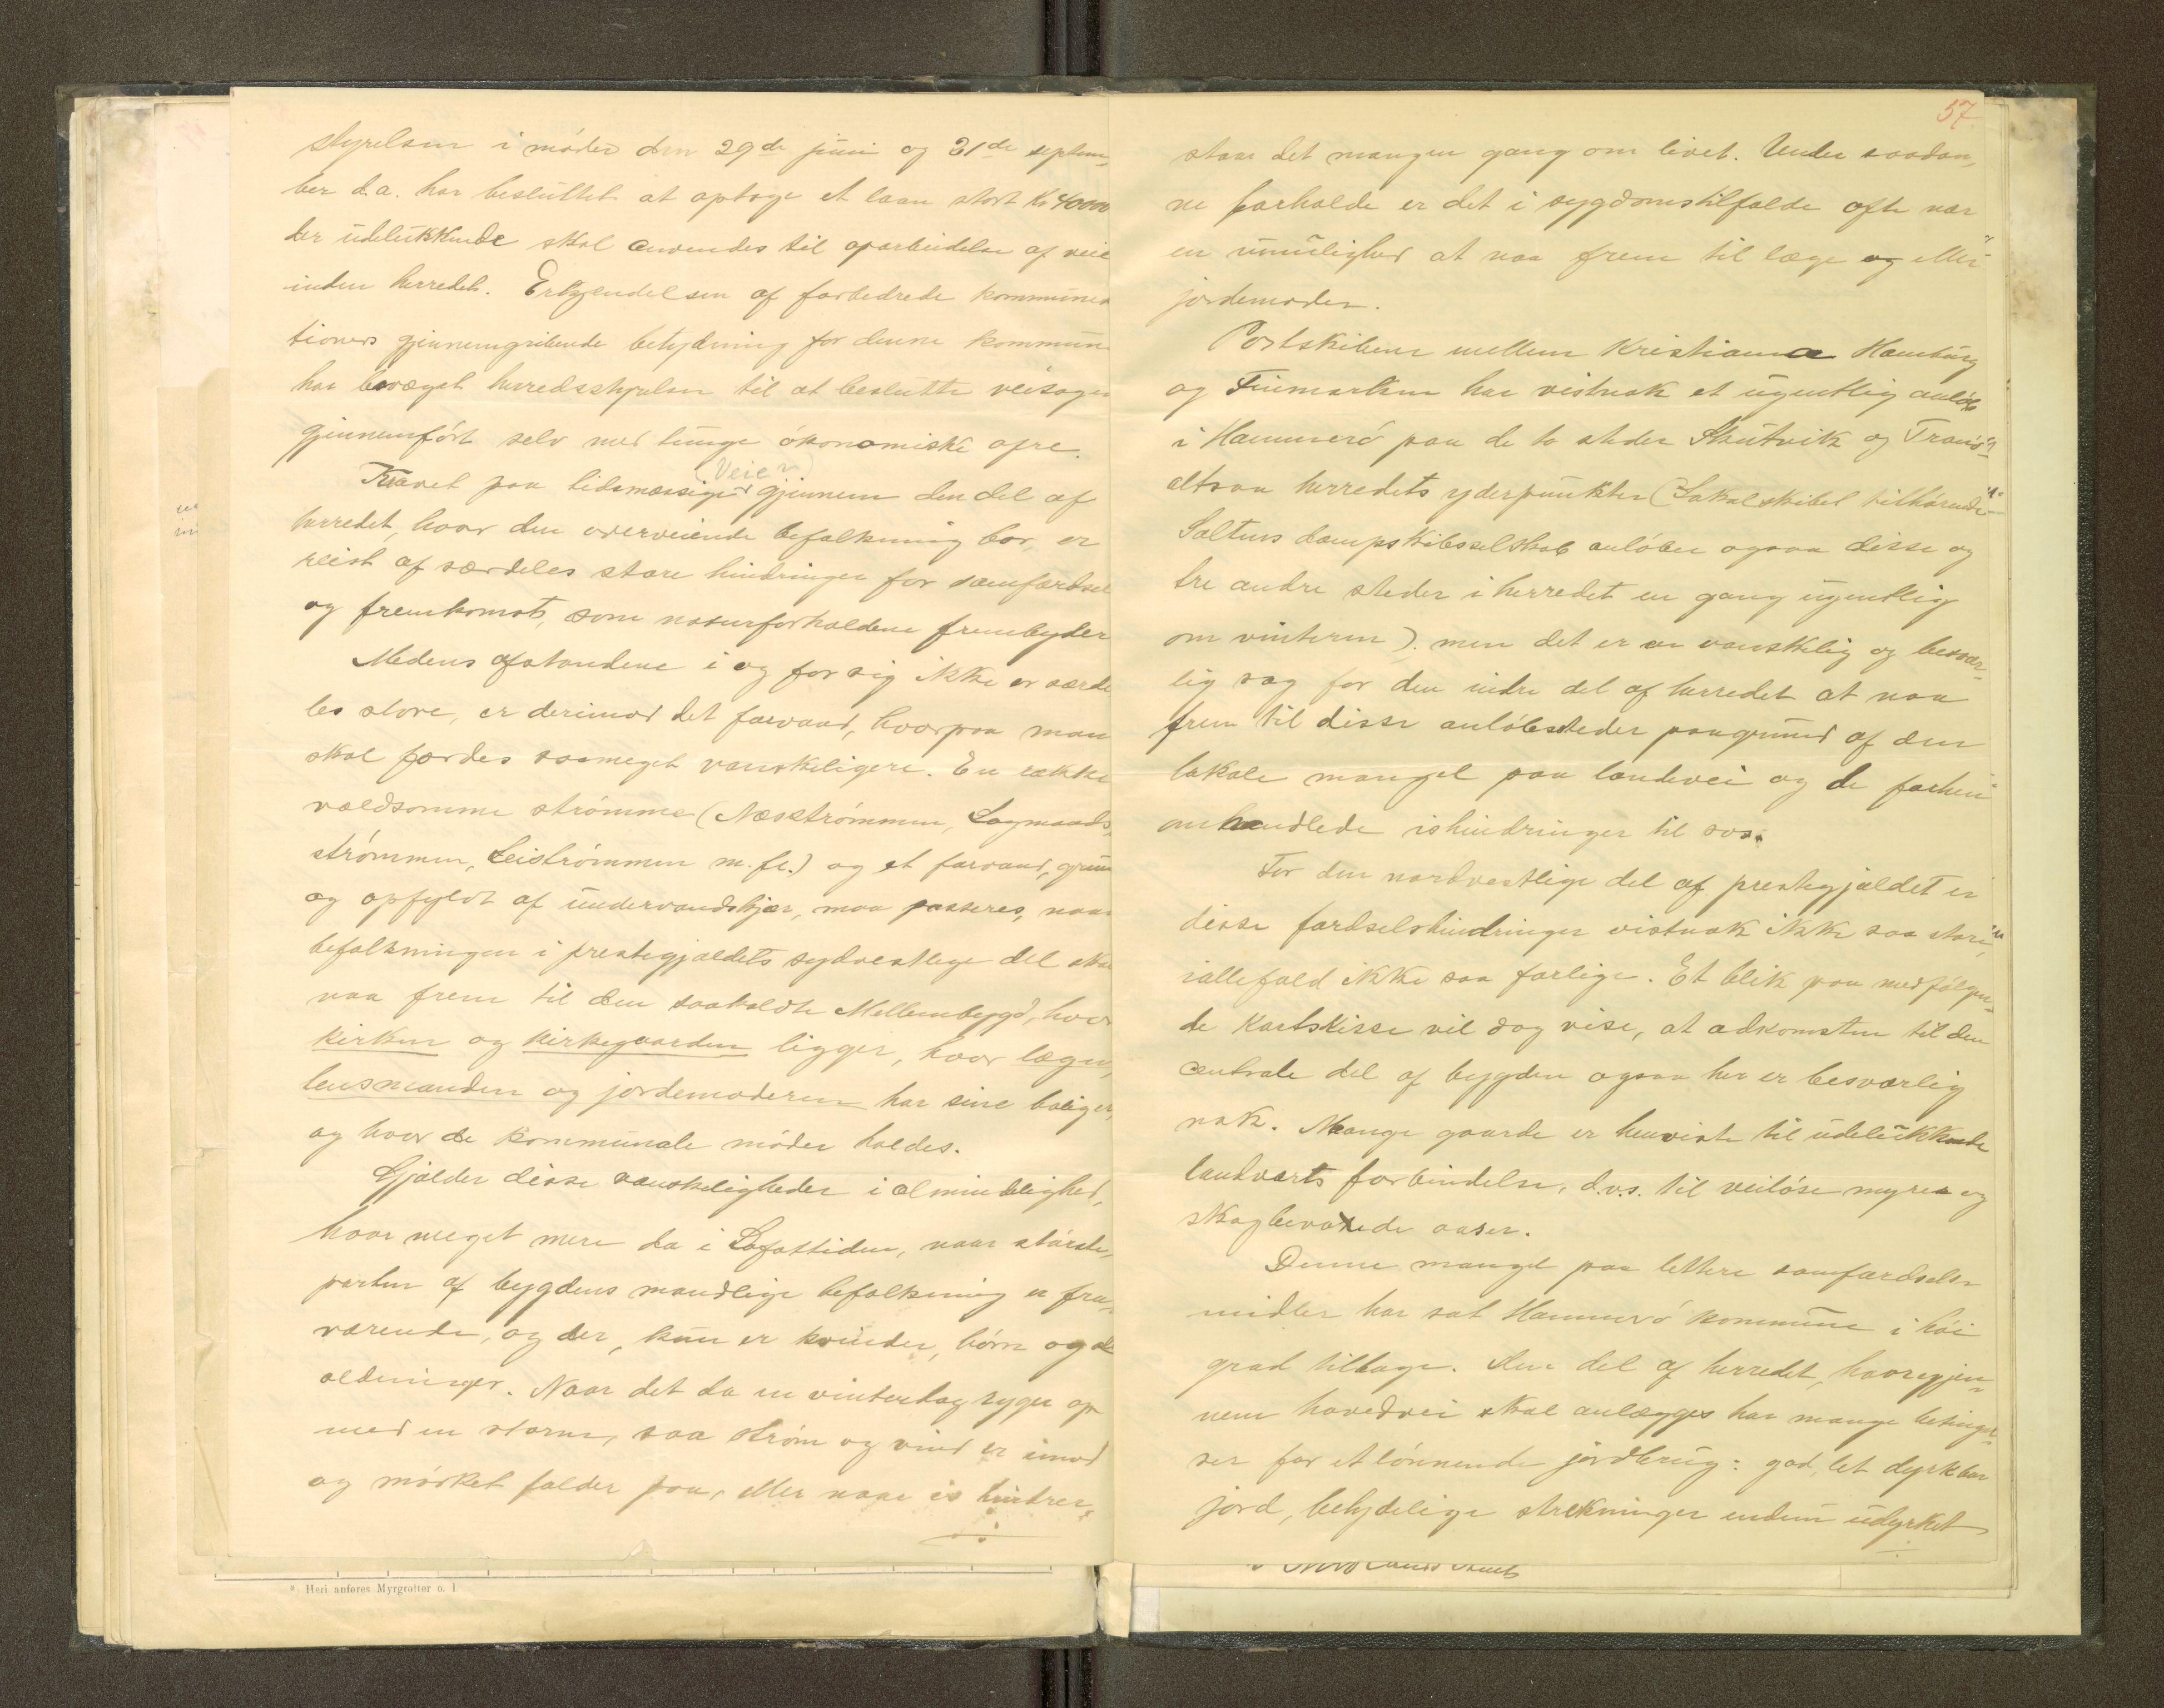 styrelsen i møder den 29de juni og 21de septem-
ber d.a. har besluttet at optage et laan stort kr 40000
der udelukkende skal anvendes til oparbeidelse af veie
inden herredet. Erkjendelsen af forbedrede kommunica
tioners gjennemgribende betydning for denne kommune
har bevæget herredsstyrelsen til at beslutte veisagen
gjennemført selv med tunge økonomiske ofre.
(Veie)
Kravet paa tidsmæssige gjennem den del af
herredet, hvor den overveiende befolkning bor, er
reist af særdeles store hindringer for samfærdsel
og fremkomst, som naturforholdene frembyder
Medens afstandene i og for sig ikke er særde
les store, er derimod det farvand, hvorpaa man
skal færdes saameget vanskeligere. En række
voldsomme strømme (Næsstrømmen, Lagmands-
strømmen, Leistrømmen m.fl.) og et farvand, grun
og opfyldt af undervandskjær, maa passeres, naar
befolkningen i prestegjældets sydvestlige del skal
naa frem til den saakaldte Mellembygd, hvor
kirken og kirkegaarden ligger, hvor lægen,
lensmanden og jordemoderen har sine boliger,
og hvor de kommunale møder holdes.
Gjælder disse vanskeligheder i almindelighed,
hvor meget mere da i Lofottiden, naar største-
parten af bygdens mandlige befolkning er fra-
værende, og der, kun er kvinder, børn og
oldinger. Naar det da en vinterdag ryger op
med en storm, saa strøm og vind er imod
og mørket falder paa, eller naar is hindrer,
* Heri anføres Myrgrøfter o. l
57
staar det mangen gang om livet. Under saadan-
ne forholde er det i sygdomstilfælde ofte nær
en umulighed at naa frem til læge og eller
jordemoder.
Postskibene mellem Kristiania Hamburg
og Finmarken har vistnok et ugentlig anløb
i Hammerø paa de to steder Skutvik og Tranø
altsaa herredets yderpunkter (Lokalskibet tilhørende
Saltens dampskibsselskab anløber ogsaa disse og
tre andre steder i herredet en gang ugentlig
om vinteren). men det er en vanskelig og besvær-
lig sag for den indre del af herredet at naa
frem til disse anløbssteder paagrund af den
lokale mangel paa landevei og de forhen
omhandlede ishindringer til søs.
For den nordvestlige del af prestegjældet er
disse færdselshindringer vistnok ikke saa store,
iallefald ikke saa farlige. Et blik paa medfølgen-
de Kartskisse vil dog vise, at adkomsten til den
centrale del af bygden ogsaa her er besværlig
nok. Mange gaarde er henviste til udelukkende
landværts forbindelse, d.v.s. til veiløse myrer og
skogbevoxede aaser.
Denne mangel paa lettere samfærdsels-
midler har sat Hammerø kommune i høi
grad tilbage. Den del af herredet, hvorigjen-
nem hovedvei skal anlægges har mange betingel-
ser for et lønnende jordbrug: god, let dyrkbar
jord, betydelige strekninger endnu udyrket